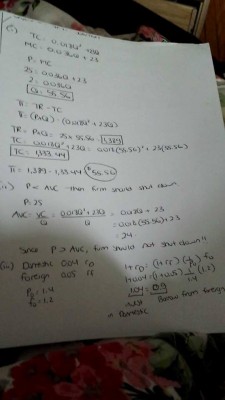 c) TC = 0.018Q² + 23Q
MC = 0.036Q + 23
P = MC
25 = 0.036Q + 23
2 = 0.036Q
Q = 55.56
π = TR - TC
π = (PxQ) - (0.018Q² + 23Q)
TR = PxQ = 25 x 55.56 = 1,389
TC = 0.018Q² + 23Q = 0.018(55.56)² + 23(55.56)
TC = 1,333.44
π = 1,389 - 1,333.44 = $55.56
ii) P < AVC then firm should shut down
P = 25
AVC = VC/Q = 0.018Q² + 23Q / Q = 0.018Q + 23
= 0.018(55.56) + 23
= 24
Since P > AVC, firm should not shut down
iii) Domestic 0.04 rD
Foreign 0.05 rf
1 + rD = (1 + rf)
1 + 0.04 = (1 + 0.05) 1/1.4 (1.2)
= 1.4
= 1.2
1.04 = 0.9
Borrow from foreign
Domestic